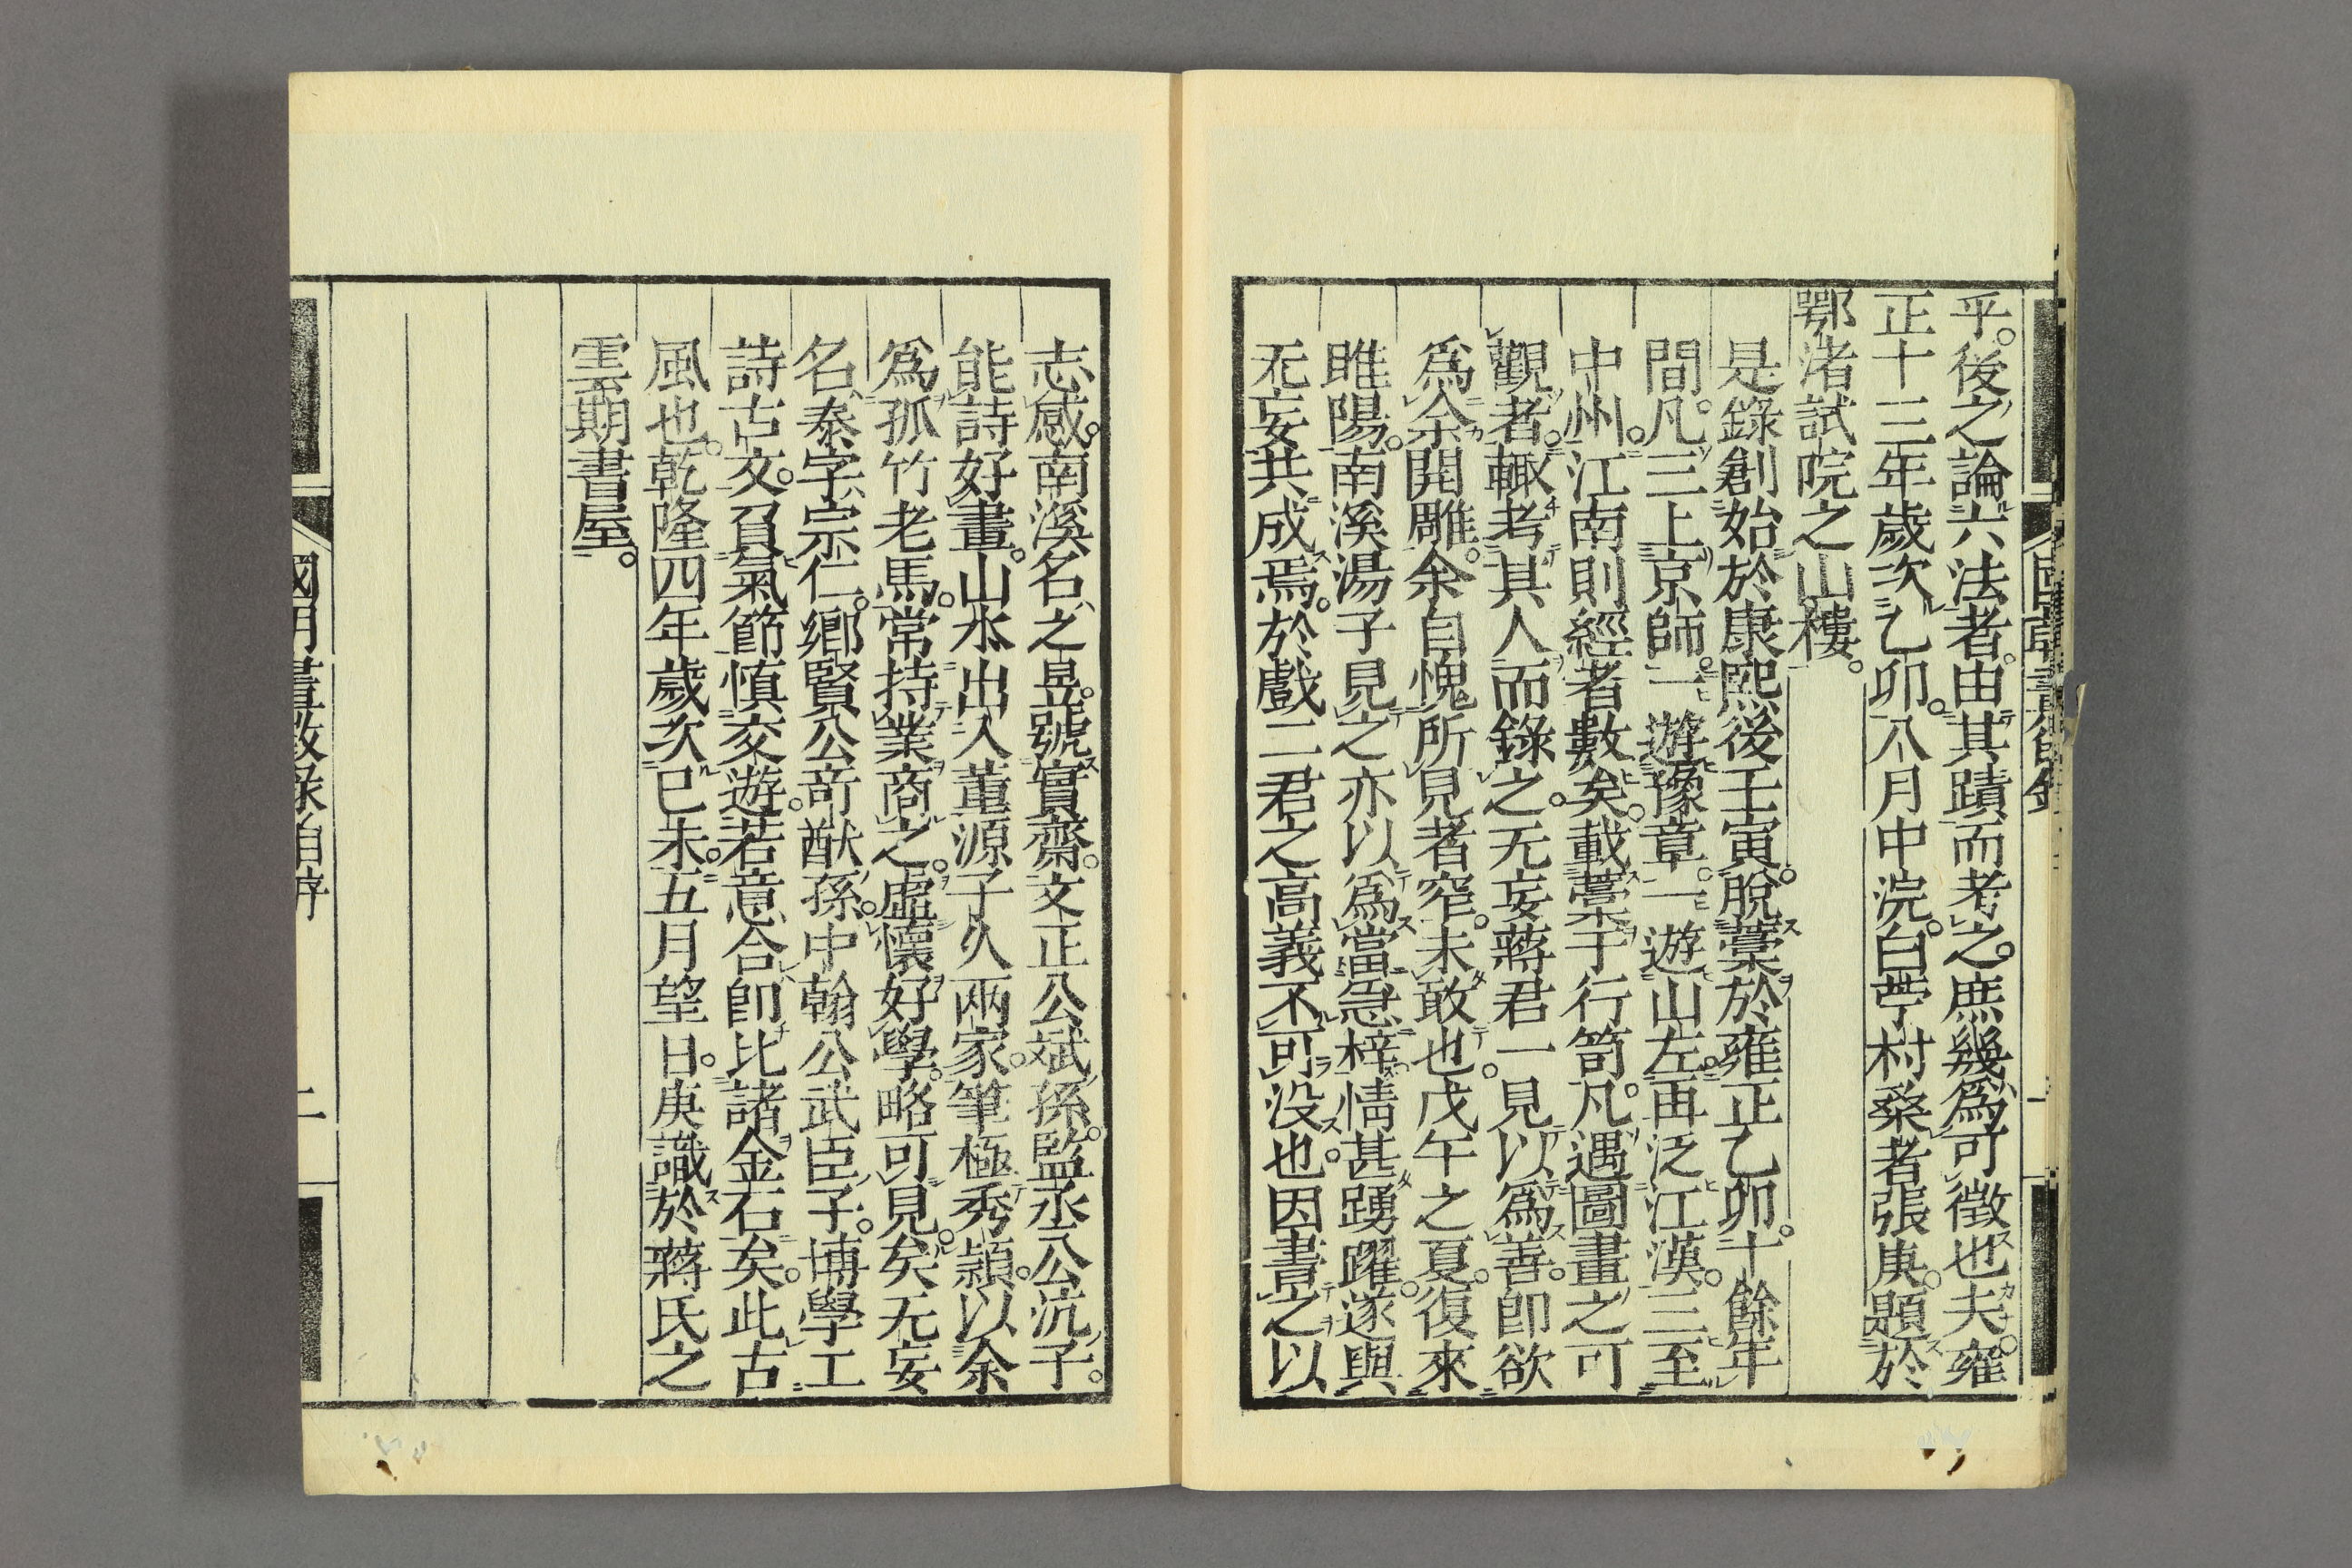 乎。後之論六法者。由其蹟而考之。庶幾爲可徵也夫。雍
正十三年歲次乙卯。八月中浣。白苧村桑者張庚。題於
鄂渚試院之山樓。
是錄創始於康熙後壬寅。脫藁於雍正乙卯。十餘年
間。凡三上京師。一遊豫章。一遊山左。再泛江漢。三至
中州。江南則經者數矣。載藁于行笥。凡遇圖畫之可
觀者。輙考其人而錄之。无妄蔣君一見以爲善。卽欲
爲余開雕。余自愧所見者窄。未敢也。戊午之夏。復來
睢陽。南溪湯子見之。亦以爲當急梓。情甚踴躍。遂與
无妄共成焉。於戲二君之高義不可没也。因書之以
志感。南溪名之昱。號實齋。文正公斌孫。監丞公沆子。
能詩好畫。山水出入董源子久兩家。筆極秀頴。以余
爲孤竹老馬。常持業商之。虛懷好學。略可見矣。无妄
名泰。字宗仁。鄉賢公奇猷孫。中翰公武臣子。博學工
詩古文。負氣節。慎交遊。若意合。卽比諸金石矣。此古
風也。乾隆四年歲次已未。五月望日。庚識於蔣氏之
雲期書屋。
國朝畫徵錄自序
二